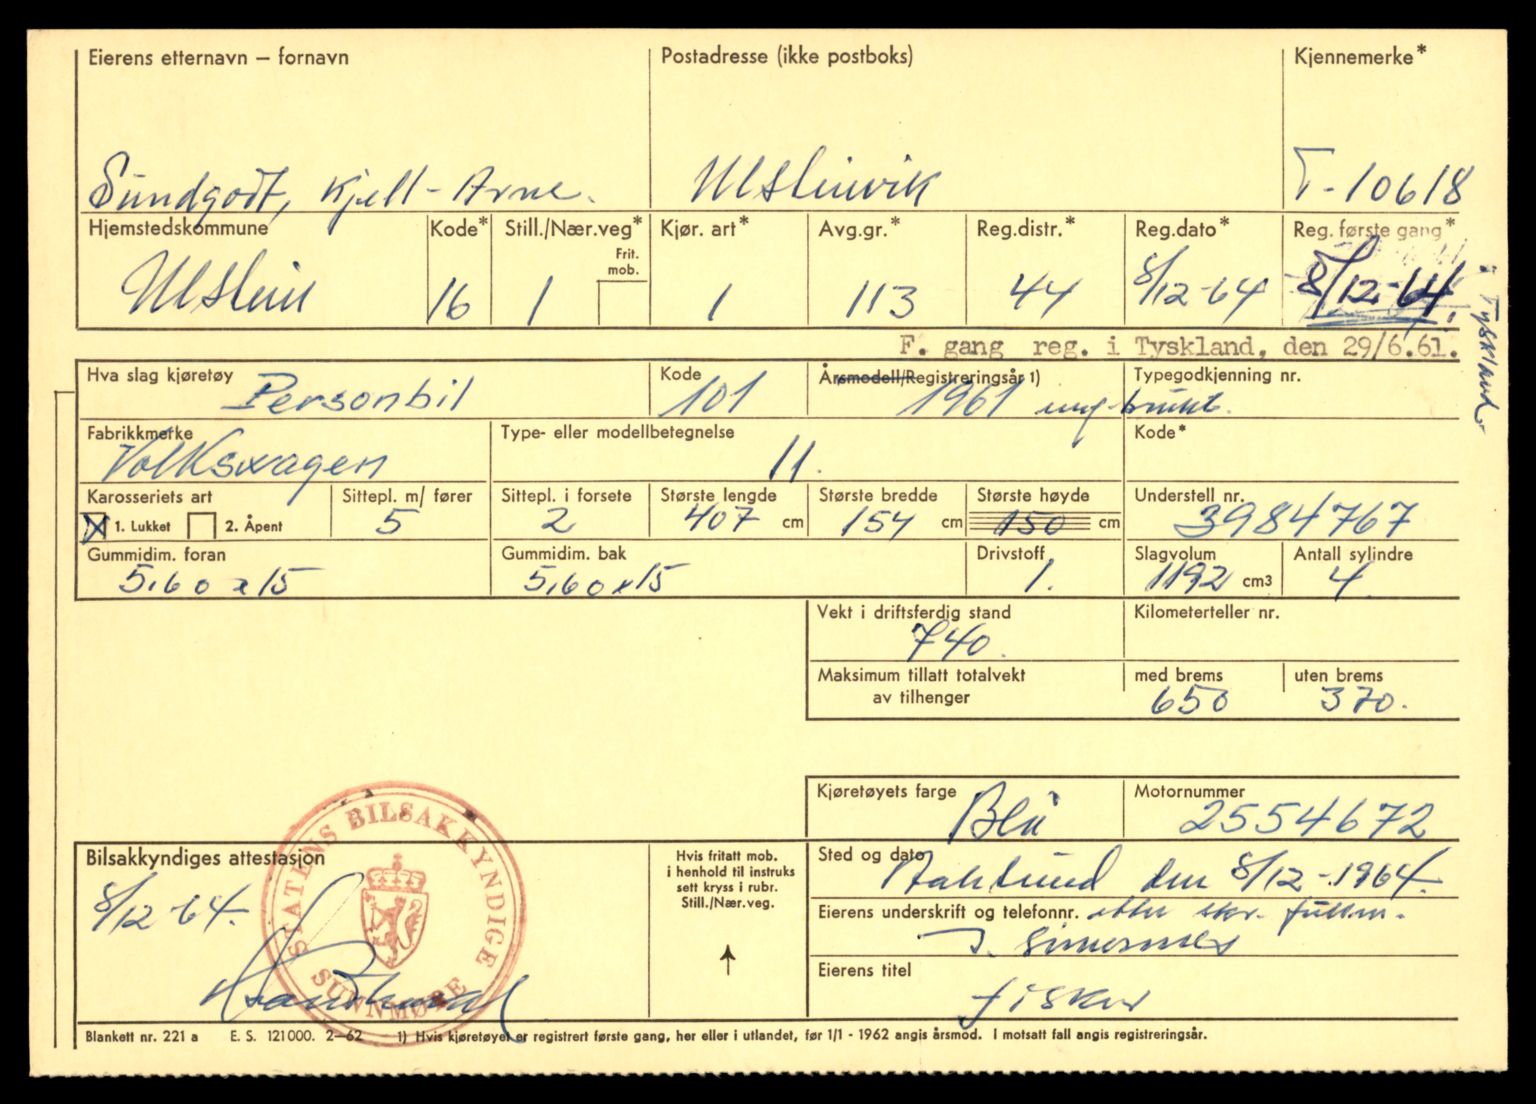 Eierens etternavn – fornavn Postadresse (ikke postboks) Kjennemerke*
Sundgodt, Kjell-Arne. Ulsteinvik T-10618
Hjemstedskommune Kode* Still./Nær.veg* Kjør. art* Avg.gr.* Reg.distr.* Reg.dato* Reg. første gang*
Frit. mob.
Ulstein 16 1 1 113 44 8/12-64 8/12-64. i Tyskland
F. gang reg. i Tyskland, den 29/6.61.
Hva slag kjøretøy Kode Årsmodell/Registreringsår 1) Typegodkjenning nr.
Personbil 101 1961 brukt.
Fabrikkmerke Type- eller modellbetegnelse Kode*
Volkswagen 11.
Karosseriets art Sittepl. m/ fører Sittepl. i forsete Største lengde Største bredde Største høyde Understell nr.
X 1. Lukket 2. Åpent 5 2 407 cm 154 cm 150 cm 3984767
Gummidim. foran Gummidim. bak Drivstoff Slagvolum Antall sylindre
5.60 x 15 5.60 x 15 1. 1192 cm3 4.
Vekt i driftsferdig stand Kilometerteller nr.
740.
Maksimum tillatt totalvekt av tilhenger med brems uten brems
650 370.
Kjøretøyets farge Motornummer
Blå 2554672
STATENS BILSAKKYNDIGE
SUNNMØRE
Bilsakkyndiges attestasjon
8/12-64.
Hvis fritatt mob.
i henhold til instruks
sett kryss i rubr.
Still./Nær.veg.
Sted og dato
den 8/12-1964.
Eierens underskrift og telefonnr. etter skr. fullm.
Eierens titel
fisker
Blankett nr. 221 a E. S. 121000. 2–62 1) Hvis kjøretøyet er registrert første gang, her eller i utlandet, før 1/1 - 1962 angis årsmod. I motsatt fall angis registreringsår.